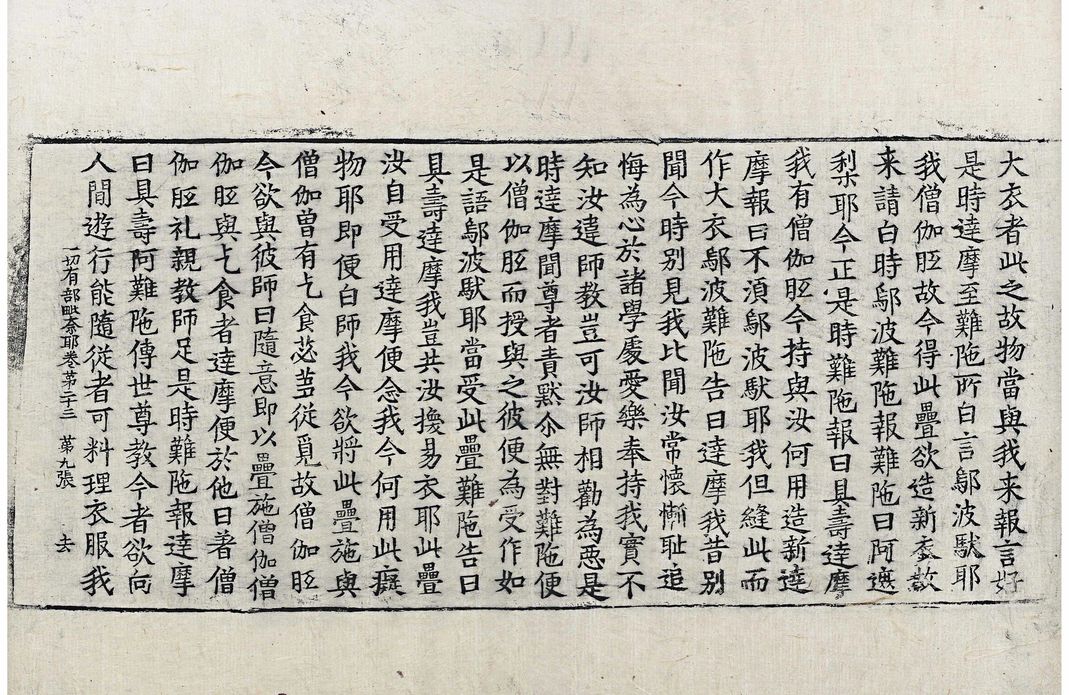 大衣者此之故物當與我来報言好
是時達摩至難陁所白言鄔波馱耶
我僧伽胝故今得此疊欲造新衣故
来請白時鄔波難陁報難陁曰阿遮
梨耶今正是時難陁報曰具壽達摩
我有僧伽胝今持與汝何用造新達
摩報曰不湏鄔波馱耶我但縫此而
作大衣鄔波難陁告曰達摩我昔別
聞今時別見我比聞汝常懷慚耻追
悔為心於諸學處愛樂奉持我實不
知汝違師教豈可汝師相勸為惡是
時達摩聞尊者責默尒無對難陁便
以僧伽胝而授與之彼便為受作如
是語鄔波馱耶當受此疊難陁告曰
具壽達摩我豈共汝換易衣耶此疊
汝自受用達摩便念我今何用此癡
物耶即便白師我今欲將此疊施與
僧伽曾有乞食苾芻從覓故僧伽胝
今欲與彼師曰隨意即以疊施僧伽僧
伽胝與乞食者達摩便於他日著僧
伽胝礼親教師足是時難陁報達摩
曰具壽阿難陁傳世尊教今者欲向
人間遊行能隨從者可料理衣服我
一切有部毗奈耶卷第二十三 第九張 去